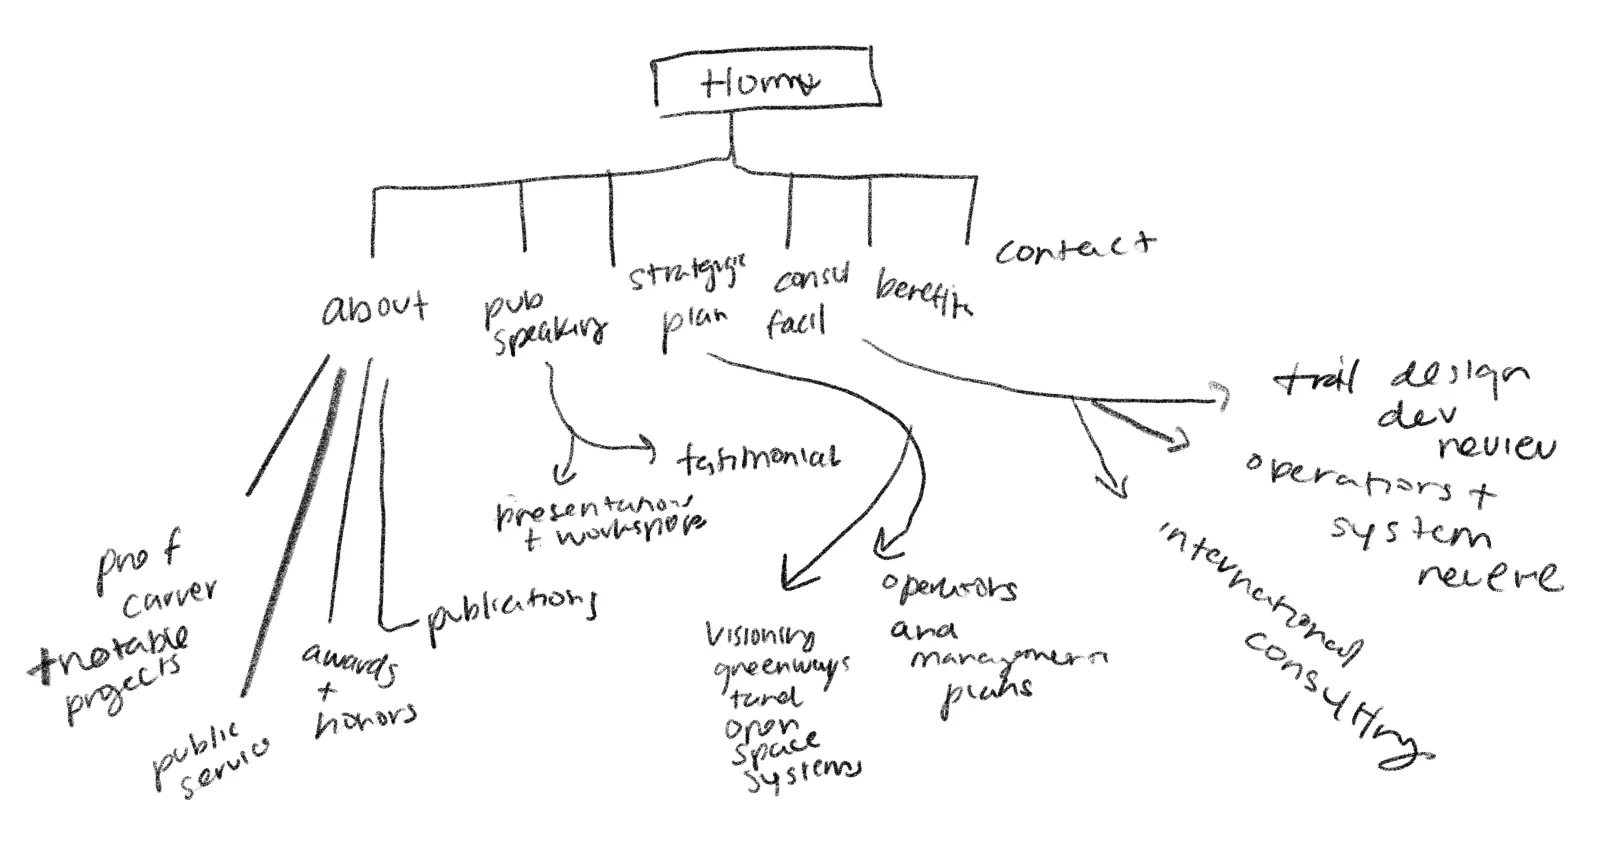 Home
about
pub
speaking
strategic
plan
consul
facil
benefits
contact
prof
career
+notable
projects
public
service
awards
+
honors
publications
presentations
+ workshops
testimonial
visioning
greenways
open
space
systems
operations
and
management
plans
trail design
dev
review
operations +
system
international
consulting